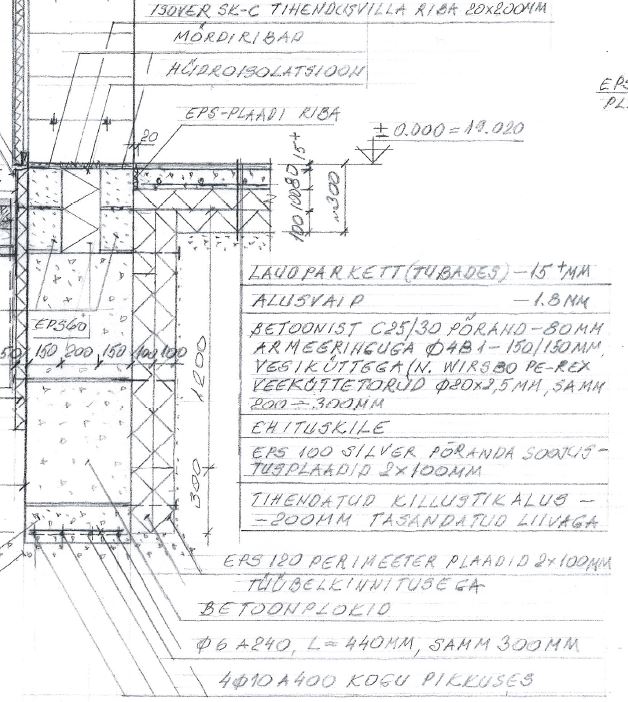 ISOVER SK-C TIHENDUSVILLA RIBA 20x200MM
MÖRDIRIBAD
HÜDROISOLATSIOON
EPS-PLAADI RIBA
EPS
PL
20
15+
80
100
100
~300
± 0.000 = 19.020
LAUDPARKETT (TUBADES) - 15+MM
ALUSVAIP - 1.8MM
BETOONIST C25/30 PÕRAND - 80MM
ARMEERINGUGA Φ4B1-150/150MM,
VESIKÜTTEGA (N. WIRSBO PE-REX
VEEKÜTTETORUD Φ20x2,5MM, SAMM
200-300MM
EHITUSKILE
EPS 100 SILVER PÕRANDA SOOJUS-
TUSPLAADID 2x100MM
TIHENDATUD KILLUSTIKALUS -
-200MM TASANDATUD LIIVAGA
EPS60
50 150 200 150 100 100
1200
300
EPS 120 PERIMEETER PLAADID 2x100MM
TÜÜBELKINNITUSEGA
BETOONPLOKID
Φ6 A240, L=440MM, SAMM 300MM
4Φ10A400 KOGU PIKKUSES